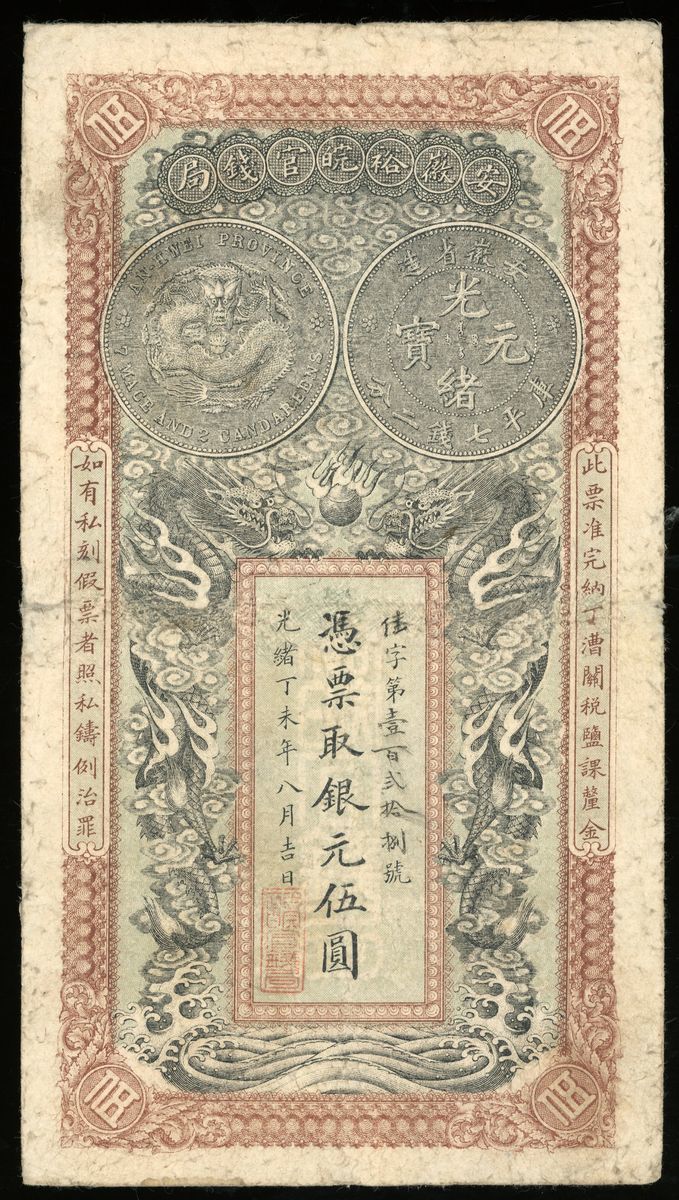 安徽裕皖官錢局
AN-HWEI PROVINCE
7 MACE AND 2 CANDAREENS
安徽省造
光緒元寶
庫平七錢二分
此票准完納丁漕關稅鹽課釐金
字第壹百弍拾捌號
憑票取銀元伍圓
光緒丁未年八月吉日
如有私刻假票者照私鑄例治罪
伍
伍
伍
伍